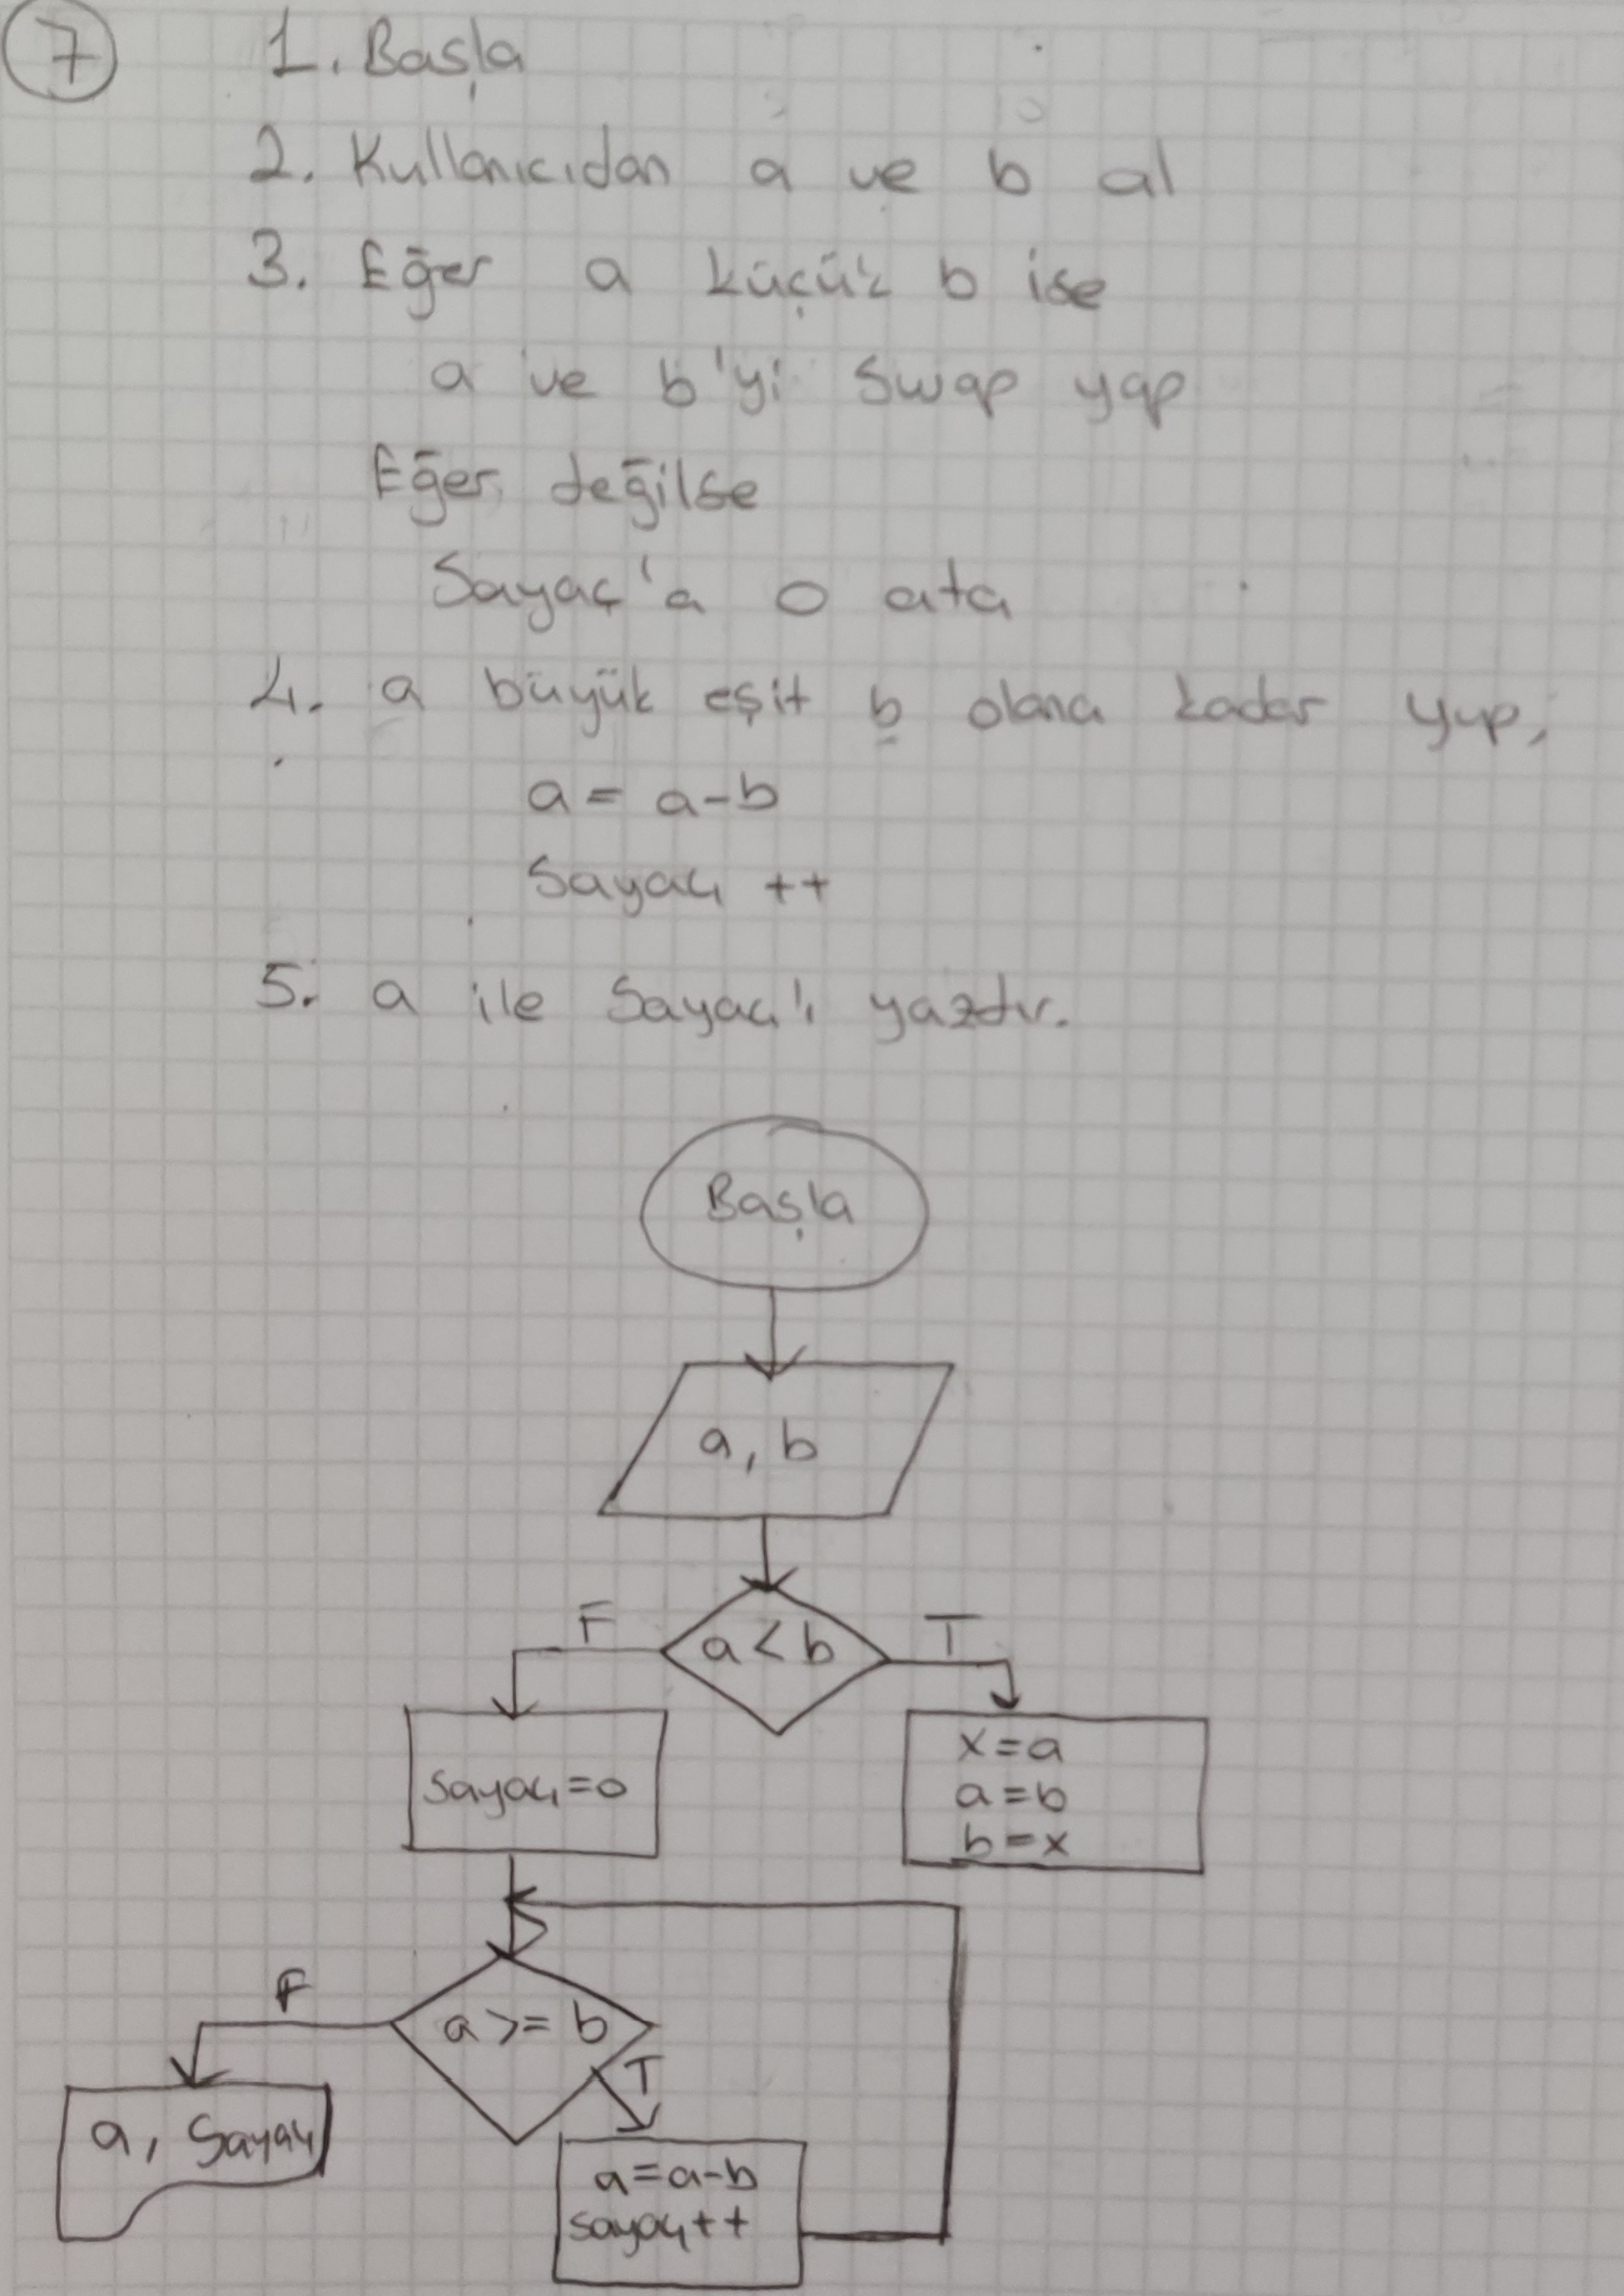 7
1. Başla
2. Kullanıcıdan a ve b al
3. Eğer a küçük b ise
a ve b'yi swap yap
Eğer değilse
Sayaç'a 0 ata
4. a büyük eşit b olana kadar yap,
a = a-b
Sayaç ++
5. a ile Sayaç'ı yazdır.
Başla
a, b
F
a < b
T
Sayaç=0
x=a
a=b
b=x
F
a >= b
T
a, Sayaç
a=a-b
sayaç++